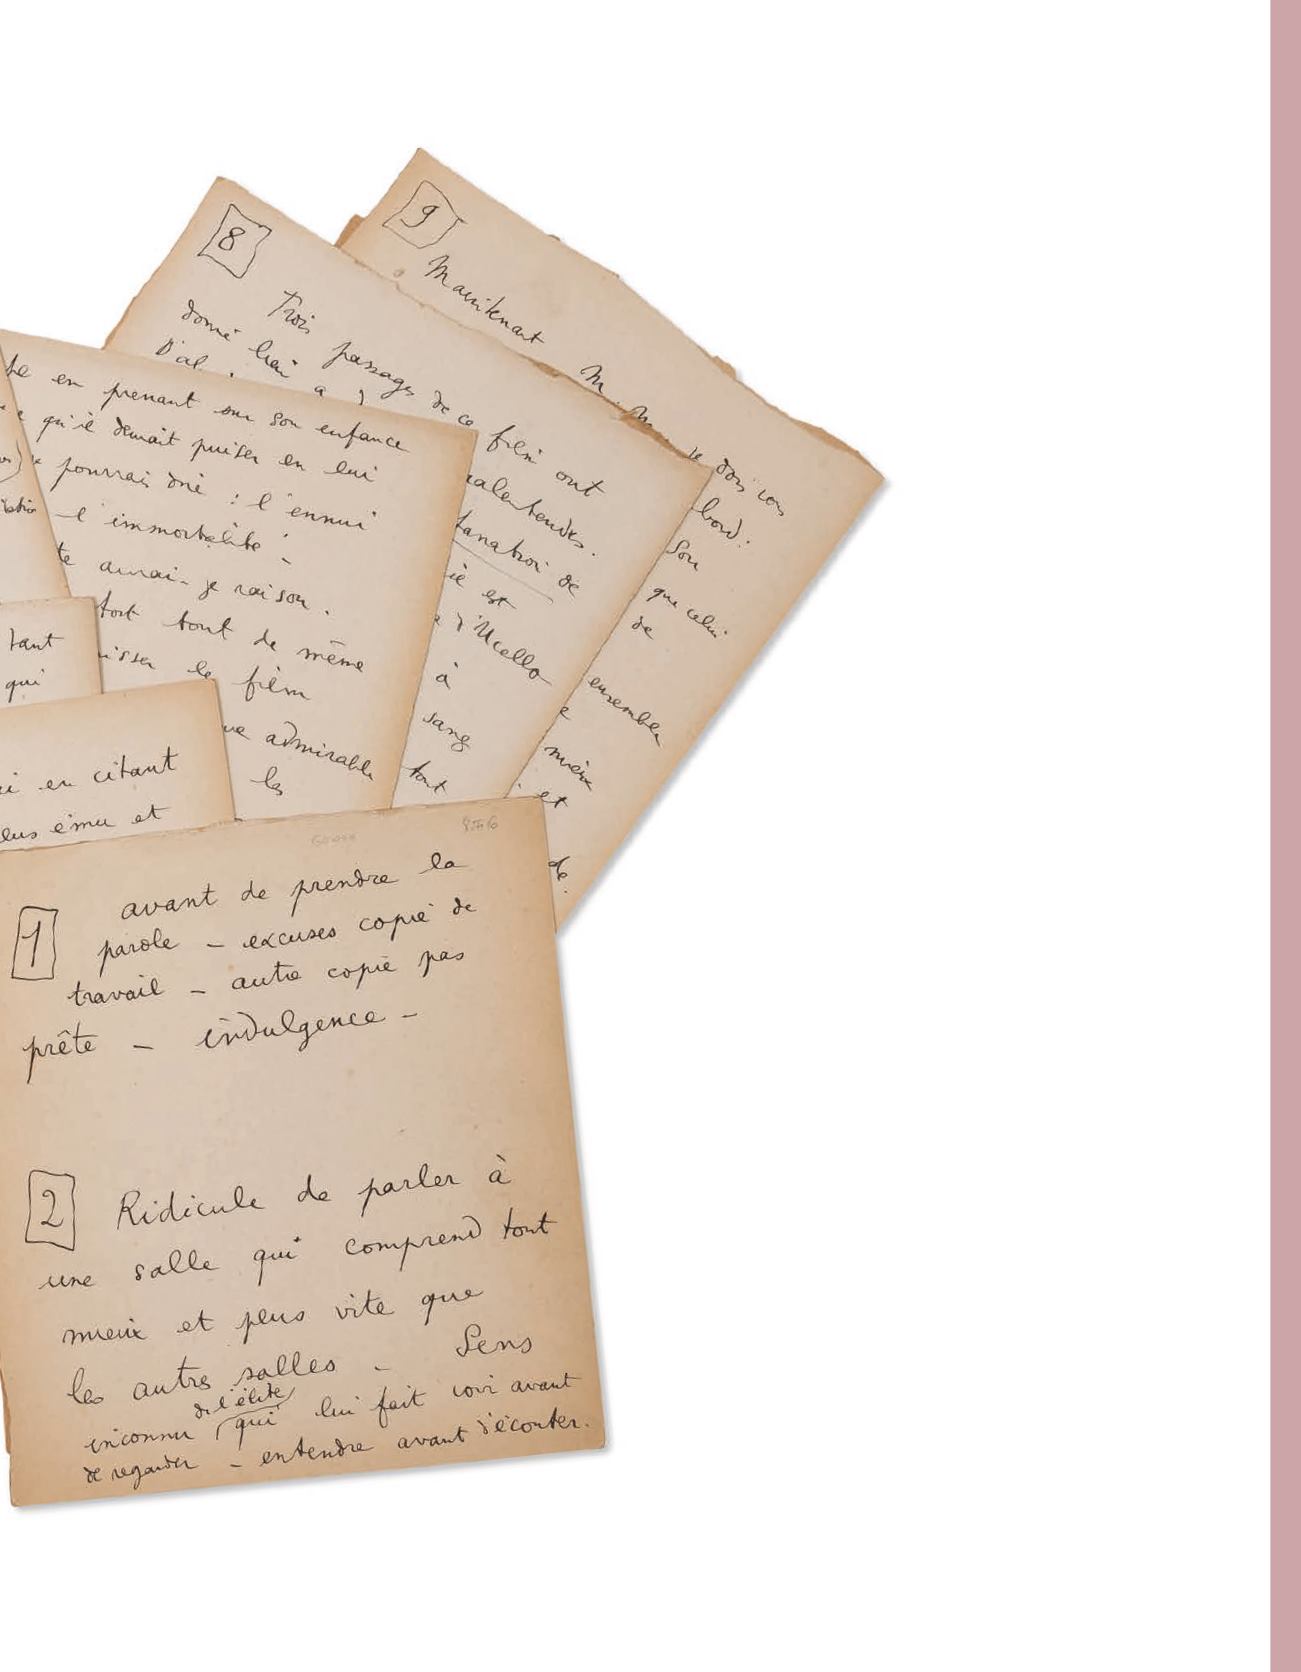 9
Maintenant M.
je dois vous
bord.
Son
que celui
de
ensemble
mieux
et
de.
8
Trois passages de ce film ont
donné lieu a
D'al
malentendus.
de
est
d'Ucello
à
sang
tout
en prenant sur son enfance
qu'il devait puiser en lui
pourrais dire : l'ennui
l'immortalité -
aurai-je raison.
tort tout de même
le film
admirable
les
tant
qui
en citant
plus ému et
1
avant de prendre la
parole - excuses copie de
travail - autre copie pas
prête - indulgence -
2
Ridicule de parler à
une salle qui comprend tout
mieux et plus vite que
les autres salles - Sens
de l'élite
inconnu qui lui fait voir avant
de regarder - entendre avant d'écouter.